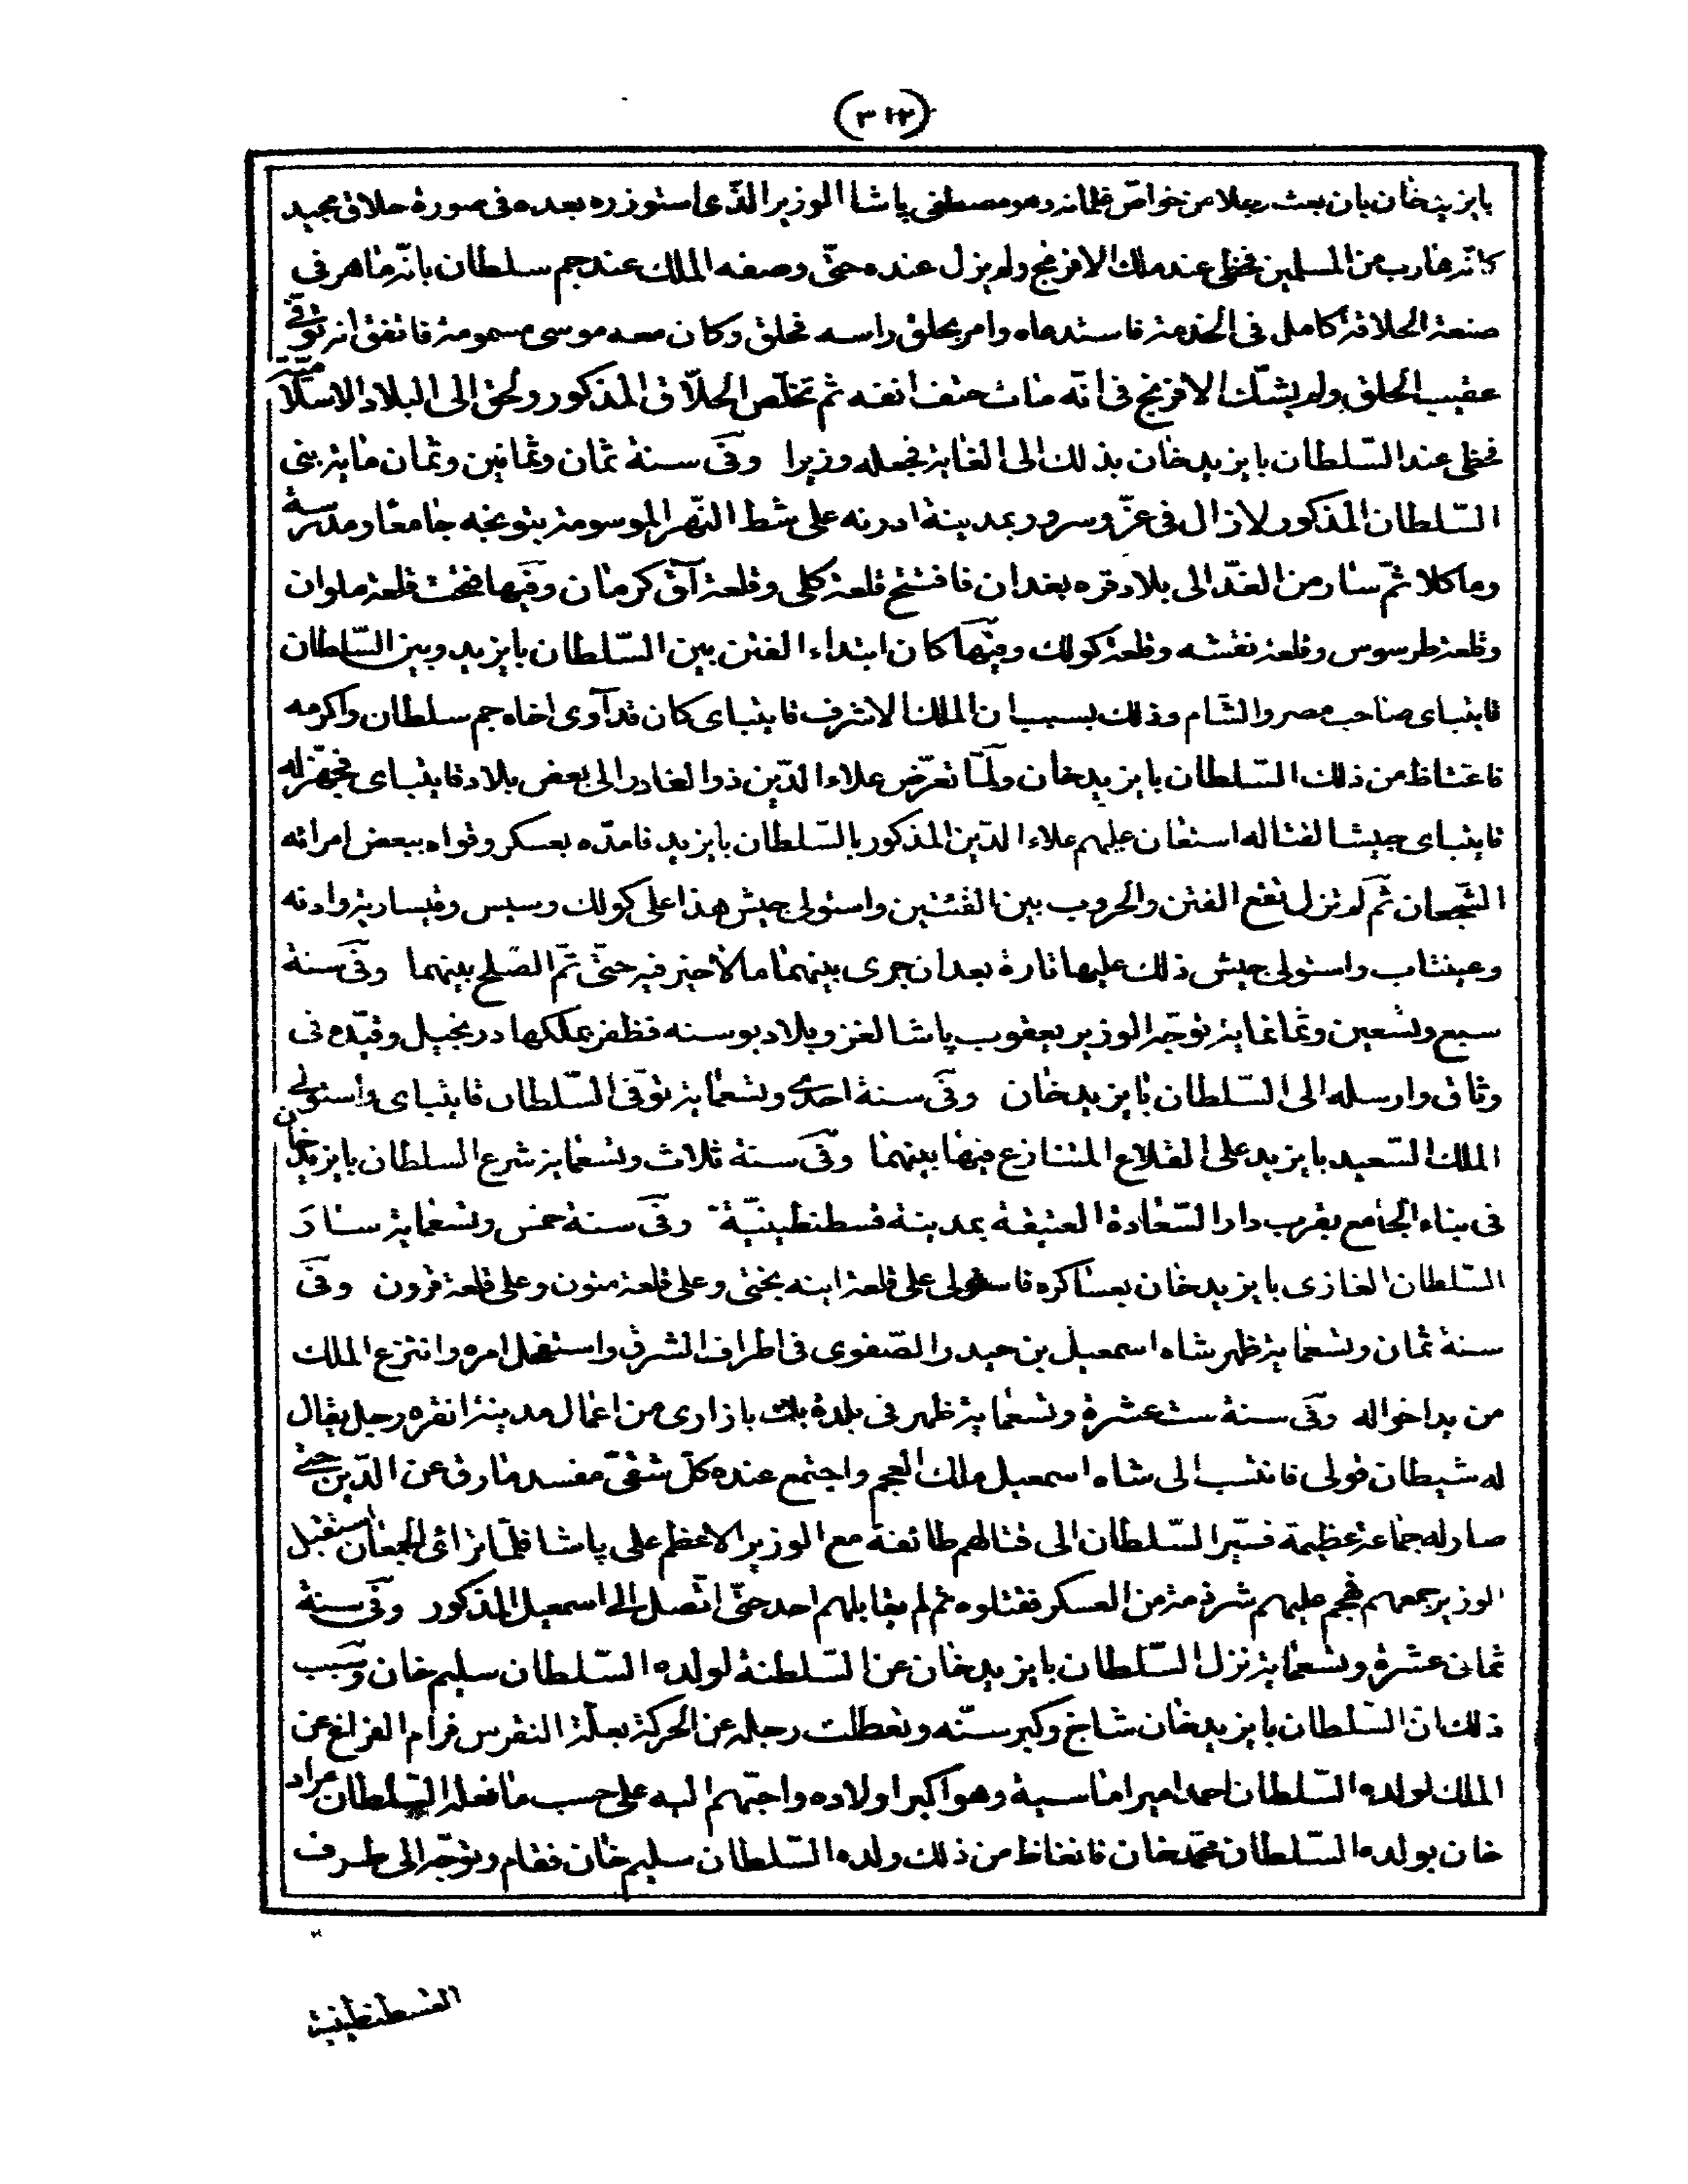 (٣١٢)
بايزيد خان بان بعث رجلا من خواص غلمانه وهو مصطفى پاشا الوزير الذى استوزره بعده فى صورة حلاق مجيد
كانه هارب من المسلمين فحظى عند ملك الافرنج ولم يزل عنده حتى وصفه الملك عند جم سلطان بانه ماهر فى
صنعة الحلاقة كامل فى الخدمة فاستدعاه وامر بحلق راسه فحلق وكان معه موسى مسمومة فاتفق انه توفى
عقيب الحلق ولم يشك الافرنج فى انه مات حتف انفه ثم تخلص الحلاق المذكور ولحق الى البلاد الاسلامية
فحظى عند السلطان بايزيد خان بذلك الى الغاية فجعله وزيرا وفى سنة ثمان وثمانين وثمان ماية بنى
السلطان المذكور لازال فى عز وسرور بمدينة ادرنه على شط النهر الموسومة بتونجه جامعا ومدرسة
وماكلا ثم سار من الغد الى بلاد قره بغدان فافتتح قلعة كلى وقلعة آق كرمان وفيها فتحت قلعة ملوان
وقلعة طرسوس وقلعة نقشه وقلعة كولك وفيها كان ابتداء الفتن بين السلطان بايزيد وبين السلطان
قايتباى صاحب مصر والشام وذلك بسبب ان الملك الاشرف قايتباى كان قد آوى اخاه جم سلطان واكرمه
فاغتاظ من ذلك السلطان بايزيد خان ولما تعرض علاء الدين ذو الغادر الى بعض بلاد قايتباى فجهز له
قايتباى جيشا لقتاله استعان عليهم علاء الدين المذكور بالسلطان بايزيد فامده بعسكر وقواه ببعض امرائه
الشجعان ثم لم تزل تقع الفتن والحروب بين الفئتين واستولى جيش هذا على كولك وسيس وقيسارية وادنه
وعينتاب واستولى جيش ذلك عليها تارة بعد ان جرى بينهما ما لا خير فيه حتى تم الصلح بينهما وفى سنة
سبع وتسعين وثمانماية توجه الوزير يعقوب پاشا لغزو بلاد بوسنه فظفر بملكها درنجيل وقيده فى
وثاق وارسله الى السلطان بايزيد خان وفى سنة احدى وتسعماية توفى السلطان قايتباى واستولى
الملك السعيد بايزيد على القلاع المتنازع فيها بينهما وفى سنة ثلاث وتسعماية شرع السلطان بايزيد خان
فى بناء الجامع بقرب دار السعادة العتيقة بمدينة قسطنطينية وفى سنة خمس وتسعماية سار
السلطان الغازى بايزيد خان بعساكره فاستولى على قلعة اينه بختى وعلى قلعة متون وعلى قلعة قرون وفى
سنة ثمان وتسعماية ظهر شاه اسمعيل بن حيدر الصفوى فى اطراف الشرق واستفحل امره وانتزع الملك
من يد اخواله وفى سنة ست عشرة وتسعماية ظهر فى بلدة بلك بازارى من اعمال مدينة انقره رجل يقال
له شيطان قولى فانتسب الى شاه اسمعيل ملك العجم واجتمع عنده كل شقى مفسد مارق عن الدين حتى
صار له جماعة عظيمة فسير السلطان الى قتالهم طائفة مع الوزير الاعظم على پاشا فلما تراءى الجمعان استقبل
الوزير جمعهم فهجم عليهم شرذمة من العسكر فقتلوه ثم لم يقابلهم احد حتى اتصل الى اسمعيل المذكور وفى سنة
ثمانى عشرة وتسعماية نزل السلطان بايزيد خان عن السلطنة لولده السلطان سليم خان وسبب
ذلك ان السلطان بايزيد خان شاخ وكبر سنه وتعطلت رجله عن الحركة بعلة النقرس فرام الفراغ عن
الملك لولده السلطان احمد امير اماسية وهو اكبر اولاده واحبهم اليه على حسب ما فعله السلطان مراد
خان بولده السلطان محمد خان فانغاظ من ذلك ولده السلطان سليم خان فقام وتوجه الى طرف
القسطنطينية